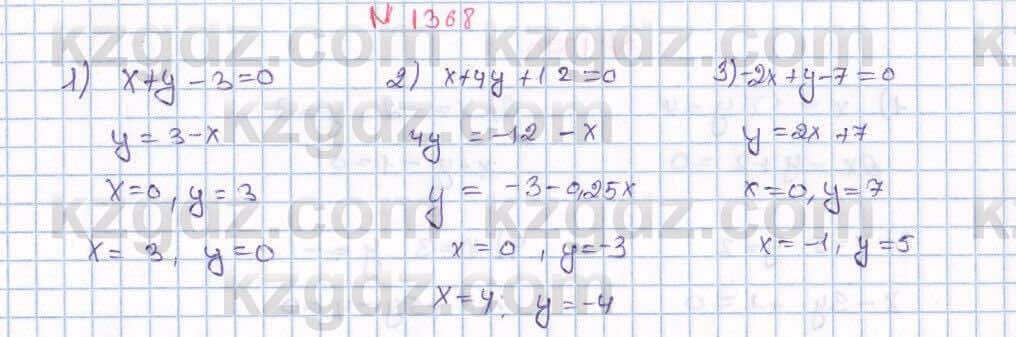 № 1368
1) x+y-3=0
y=3-x
x=0, y=3
x=3, y=0
2) x+4y+12=0
4y=-12-x
y=-3-0,25x
x=0, y=-3
x=4; y=-4
3) -2x+y-7=0
y=2x+7
x=0, y=7
x=-1, y=5
kzgdz.com
kzgdz.com
kzgdz.com
kzgdz.com
kzgdz.com